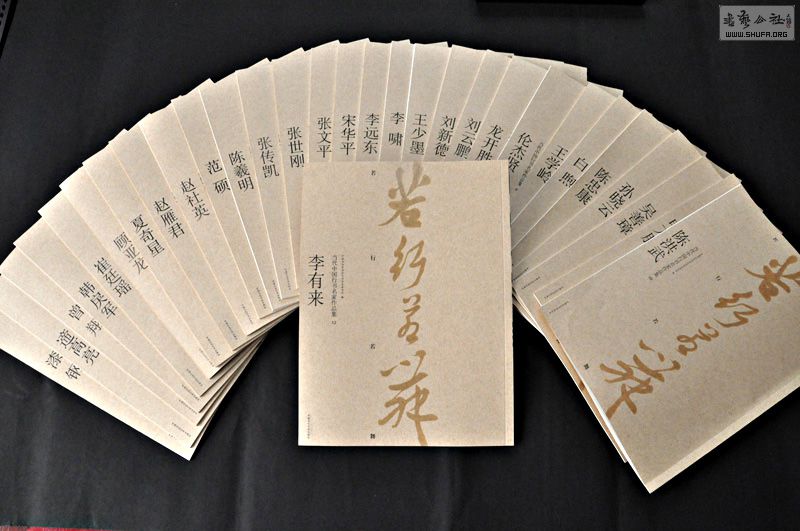 書藝公社
WWW.SHUFA.ORG
漆钢
遆高亮
曾翔
韩戾军
崔廷瑶
顾亚龙
夏奇星
赵雁君
赵社英
范硕
陈羲明
张传凯
张世刚
张文平
宋华平
李远东
李啸
王少墨
刘新德
刘云鹏
龙开胜
伦杰贤
王学岭
白煦
陈忠康
孙晓云
吴善璋
陈洪武
若行若舞
若行若舞
当代中国行书名家作品集
李有来
若行若舞